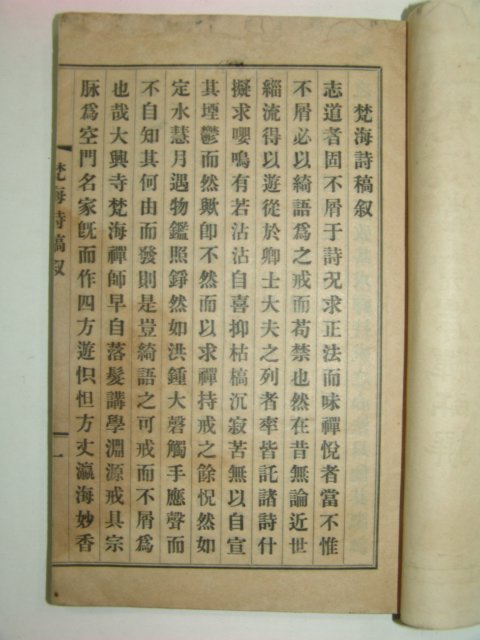 梵海詩稿叙
志道者固不屑于詩况求正法而味禪悅者當不惟
不屑必以綺語爲之戒而苟禁也然在昔無論近世
緇流得以遊從於卿士大夫之列者率皆託諸詩什
擬求嚶鳴有若沾沾自喜抑枯槁沉寂苦無以自宣
其堙鬱而然歟卽不然而以求禪持戒之餘怳然如
定水慧月遇物鑑照錚然如洪鍾大磬觸手應聲而
不自知其何由而發則是豈綺語之可戒而不屑爲
也哉大興寺梵海禪師早自落髮講學淵源戒具宗
脉爲空門名家旣而作四方遊怾怛方丈瀛海妙香
梵海詩稿叙
一